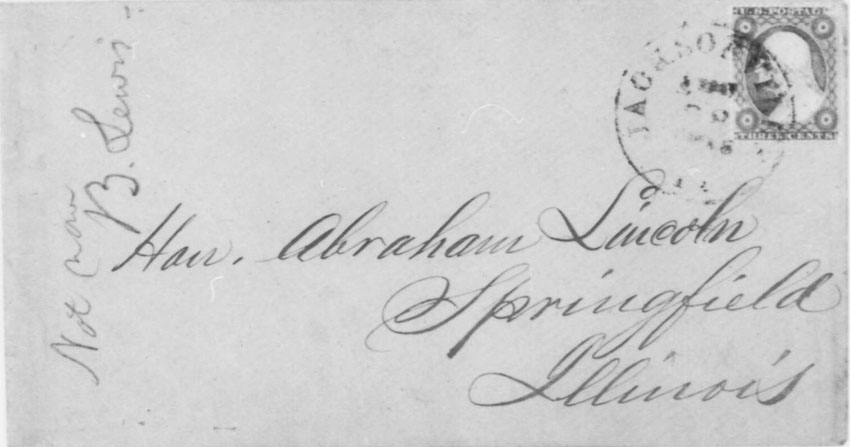 U.S. POSTAGE
THREE CENTS
JACKSONVILL
B. Lewis
Not now
Hon. Abraham Lincoln
Springfield
Illinois